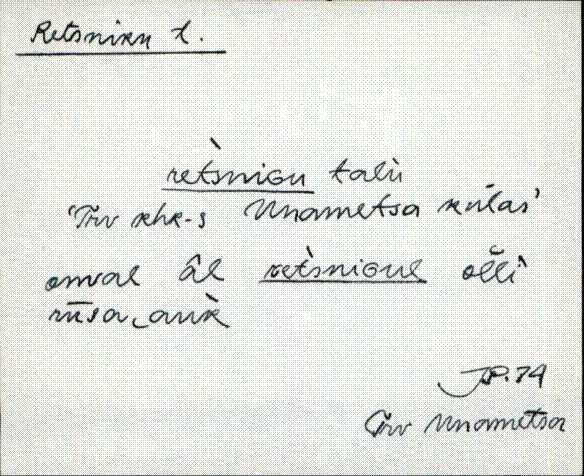 Retsniku t.
retsniGu talù
'Trv khk-s Unametsa külas'
omval âl retsniGul olĕì
rīisa‿aùk
JP.74
Trv Unametsa